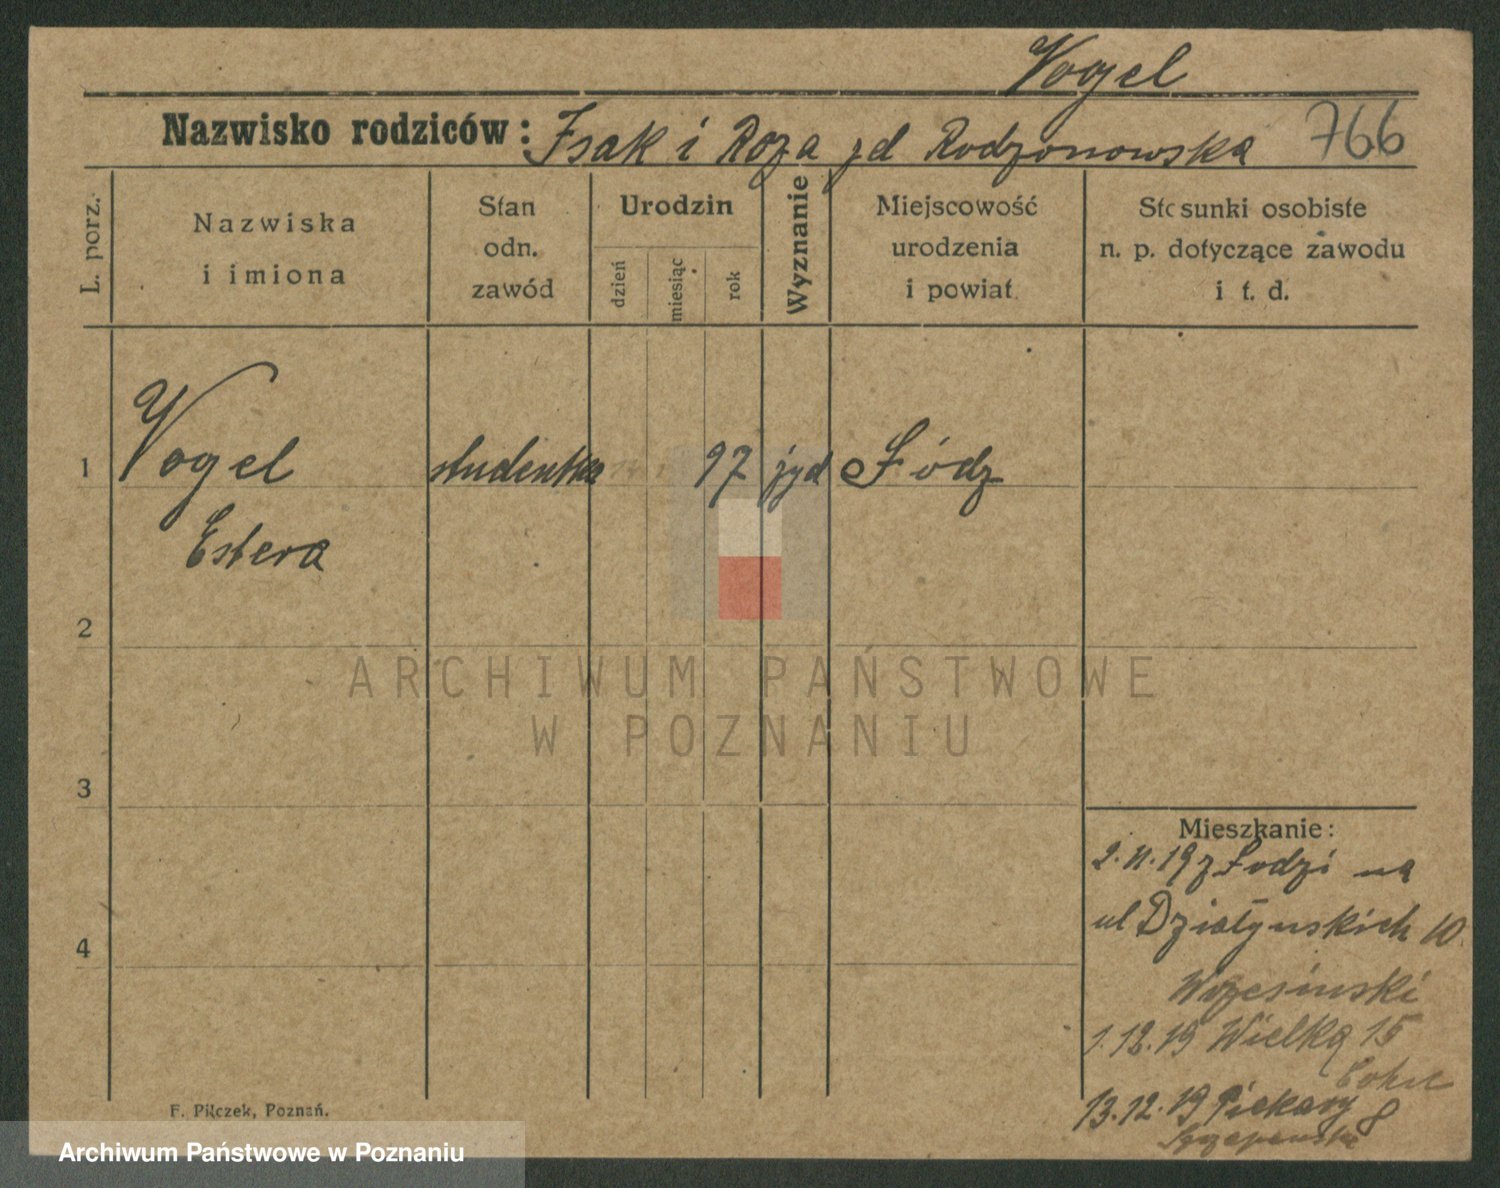 Vogel
Nazwisko rodziców: Isak i Roza zd Rodzonowska 766
L. porz.
Nazwiska
i imiona
Stan
odn.
zawód
Urodzin
dzień
miesiąc
rok
Wyznanie
Miejscowość
urodzenia
i powiat.
Stosunki osobiste
n. p. dotyczące zawodu
i t. d.
1 Vogel studentka 97 żyd Łódz
Estera
2
3
4
Mieszkanie:
2.11.19 z Łodzi na
ul Działynskich 10.
Wrzesinski
1.12.19 Wielką 15
13.12.19 Piekary 8
F. Pilczek, Poznań.
ARCHIWUM PAŃSTWOWE
W POZNANIU
Archiwum Państwowe w Poznaniu